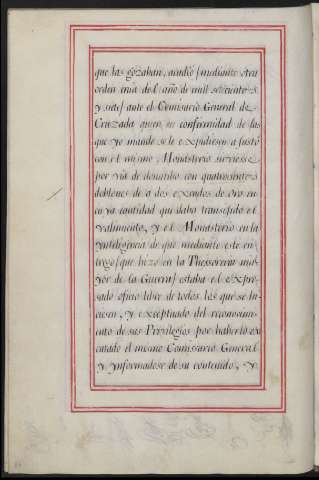 que las gozaban, acudio (mediante otra
orden mia del año de mil setecientos
y siete) ante el Comisario General de
Cruzada quien en conformidad de las
que yo mande se le expidiesen, ajustó
con el mismo Monasterio sirviese
por via de donatibo con quatrocientos
doblones de a dos escudos de oro en
cuya cantidad quedaba transigido el
valimiento, y el Monasterio en la
ynteligencia de que mediante este en-
trego (que hizo en la Thessoreria ma-
yor de la Guerra) estaba el expre-
sado oficio libre de todos los que se hi-
ciesen, y exceptuado del reconocimi-
ento de sus Privilegios por haberlo exe-
cutado el mismo Comisario General
y ynformadose de su contenido, y